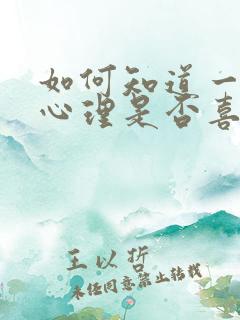 如何知道一
心理是否喜
王以哲
未经同意禁止转载